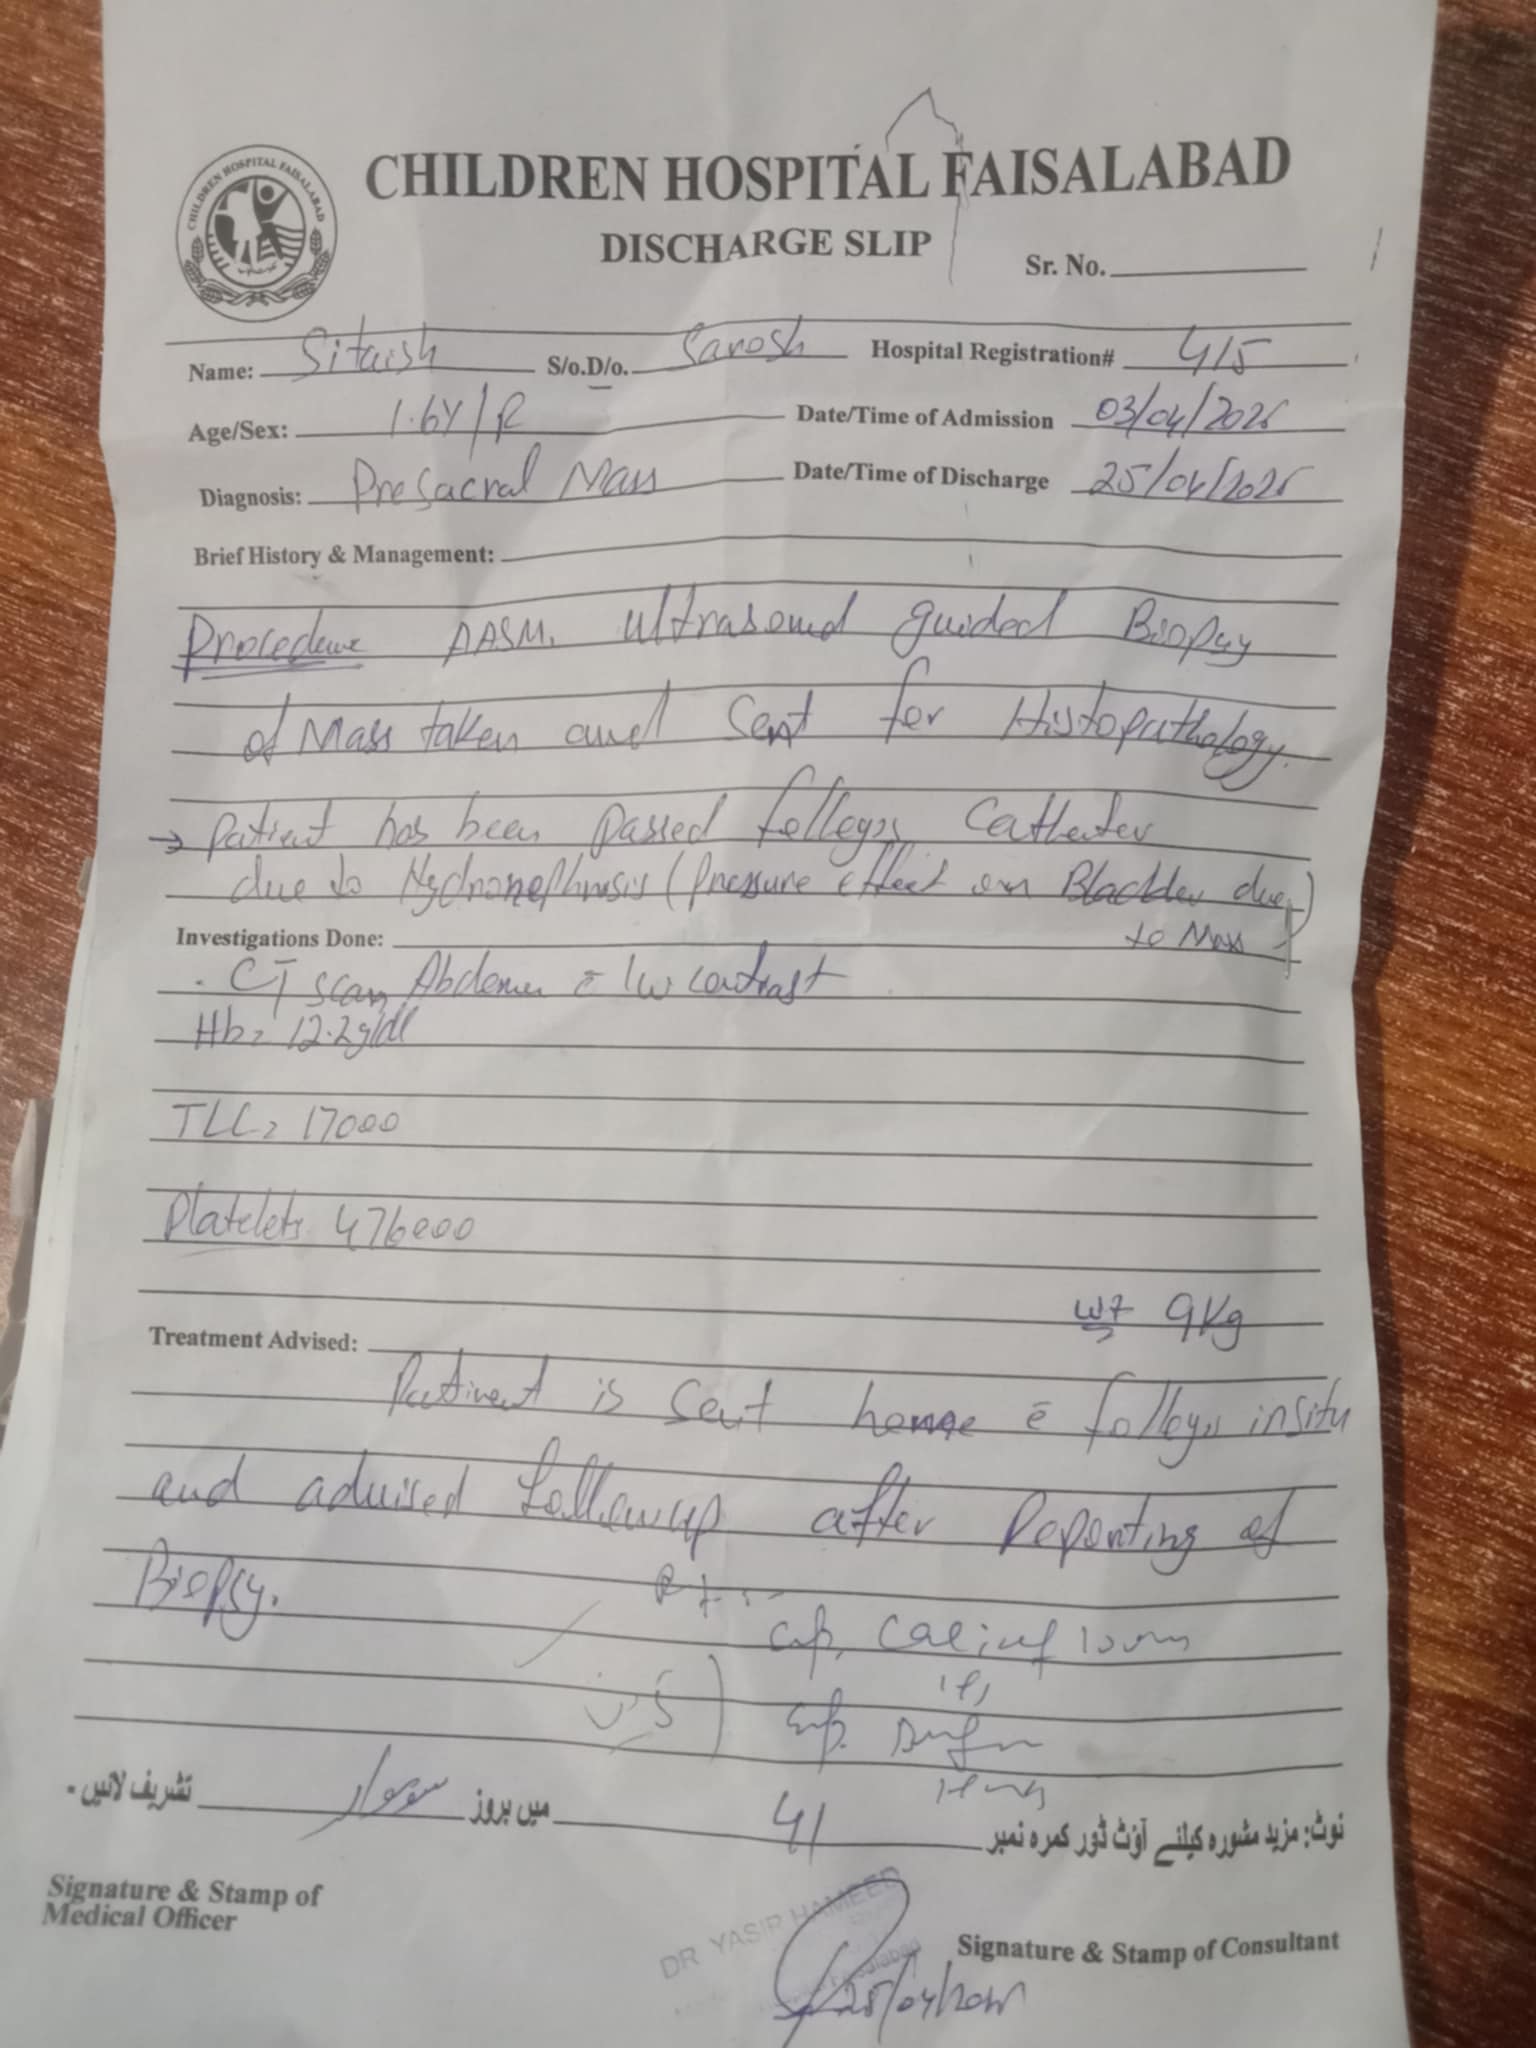 CHILDREN HOSPITAL FAISALABAD
CHILDREN HOSPITAL FAISALABAD
DISCHARGE SLIP
Sr. No.
Name: Sitaish S/o.D/o. Sarosh Hospital Registration# 415
Age/Sex: 1.6Y/ Date/Time of Admission 03/04/2026
Diagnosis: Presacral Mass Date/Time of Discharge 25/04/2026
Brief History & Management:
Procedure AASM. Ultrasound guided Biopsy
of Mass taken and Sent for Histopathology.
→ Patient has been passed folleys Catheter
due to Hydronephrosis (Pressure effect on Bladder due
to Mass)
Investigations Done:
. CT scan Abdomen c̄ IV contrast
Hb= 12.2g/dl
TLC= 17000
Platelets 476000
wt 9Kg
Treatment Advised:
Patient is sent home c̄ folleys insitu
and advised followup after Reporting of
Biopsy.
نوٹ: مزید مشورہ کیلئے آؤٹ ڈور کمرہ نمبر 41 میں بروز سوموار تشریف لائیں۔
Signature & Stamp of
Medical Officer
DR YASIR HAMEED
Signature & Stamp of Consultant
25/04/